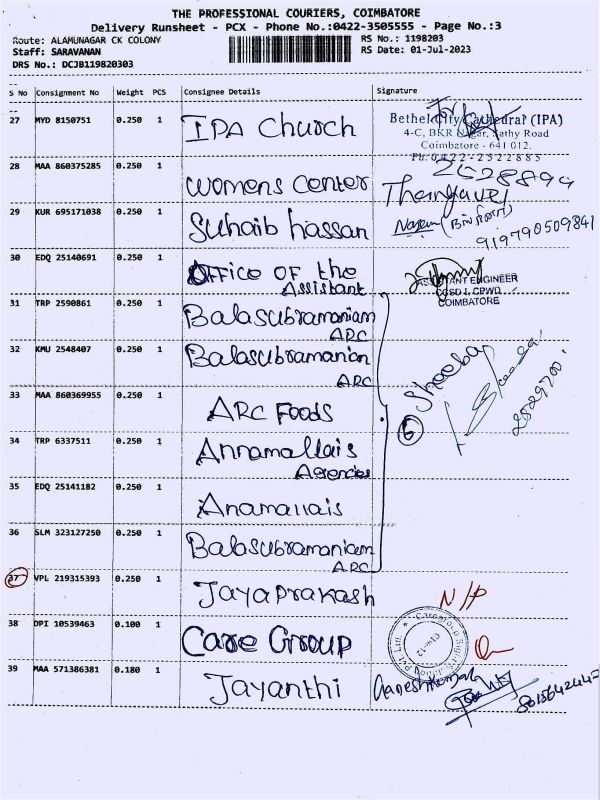 THE PROFESSIONAL COURIERS, COIMBATORE
Delivery Runsheet - PCX - Phone No.:0422-3505555 - Page No.:3
Route: ALAMUNAGAR CK COLONY
RS No.: 1198203
Staff: SARAVANAN
RS Date: 01-Jul-2023
DRS No.: DCJB119820303
S No Consignment No Weight PCS Consignee Details Signature
27 MYD 8150751 0.250 1 IPA Church
Bethel City Cathedral (IPA)
4-C, BKR Nagar, Sathy Road
Coimbatore - 641 012.
Ph: 0422-2522885
28 MAA 860375285 0.250 1 Womens Center
Thangavel
29 KUR 695171038 0.250 1 Suhaib hassan
919790509841
30 EDQ 25140691 0.250 1 Office of the
Assistant
ASSISTANT ENGINEER
CCSD I, CPWD
COIMBATORE
31 TRP 2590861 0.250 1 Balasubramaniam
ARC
32 KMU 2548407 0.250 1 Balasubramanian
ARC
Shoeba
33 MAA 860369955 0.250 1 ARC Foods
6
34 TRP 6337511 0.250 1 Annamallais
Agencies
35 EDQ 25141182 0.250 1 Anamallais
36 SLM 323127250 0.250 1 Balasubramaniam
ARC
37 VPL 219315393 0.250 1 Jayaprakash
N/P
38 DPI 10539463 0.100 1 Care Group
39 MAA 571386381 0.180 1 Jayanthi
Ganeshkumar